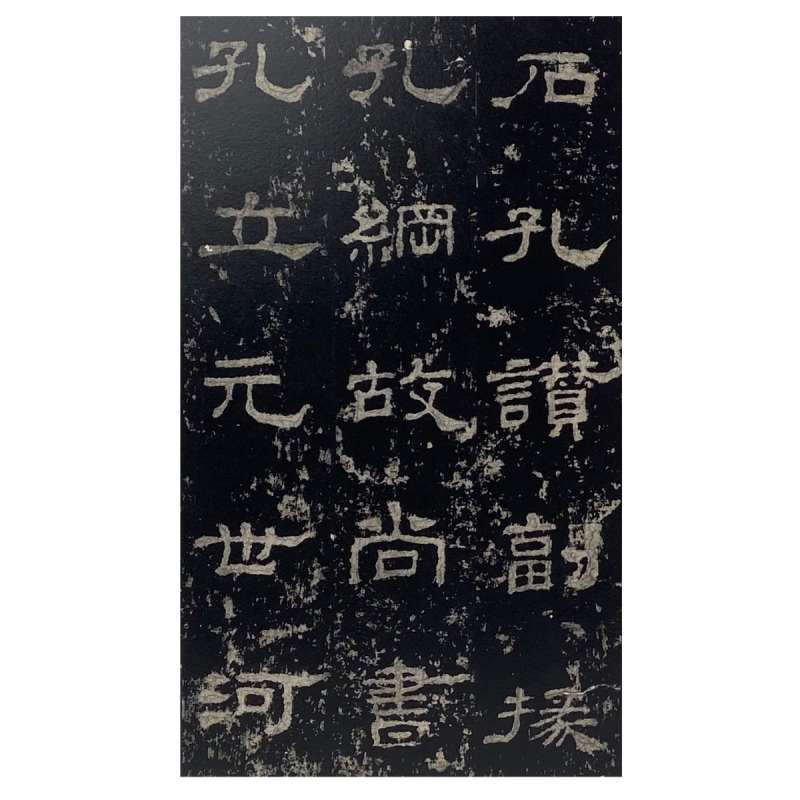 石孔讚副掾
孔綱故尚書
孔立元世河